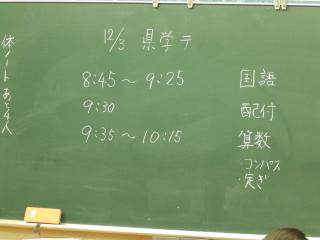 12/3 県学テ
8:45 〜 9:25 国語
9:30 配付
9:35 〜 10:15 算数
・コンパス
・定ぎ
体ノート あと4人